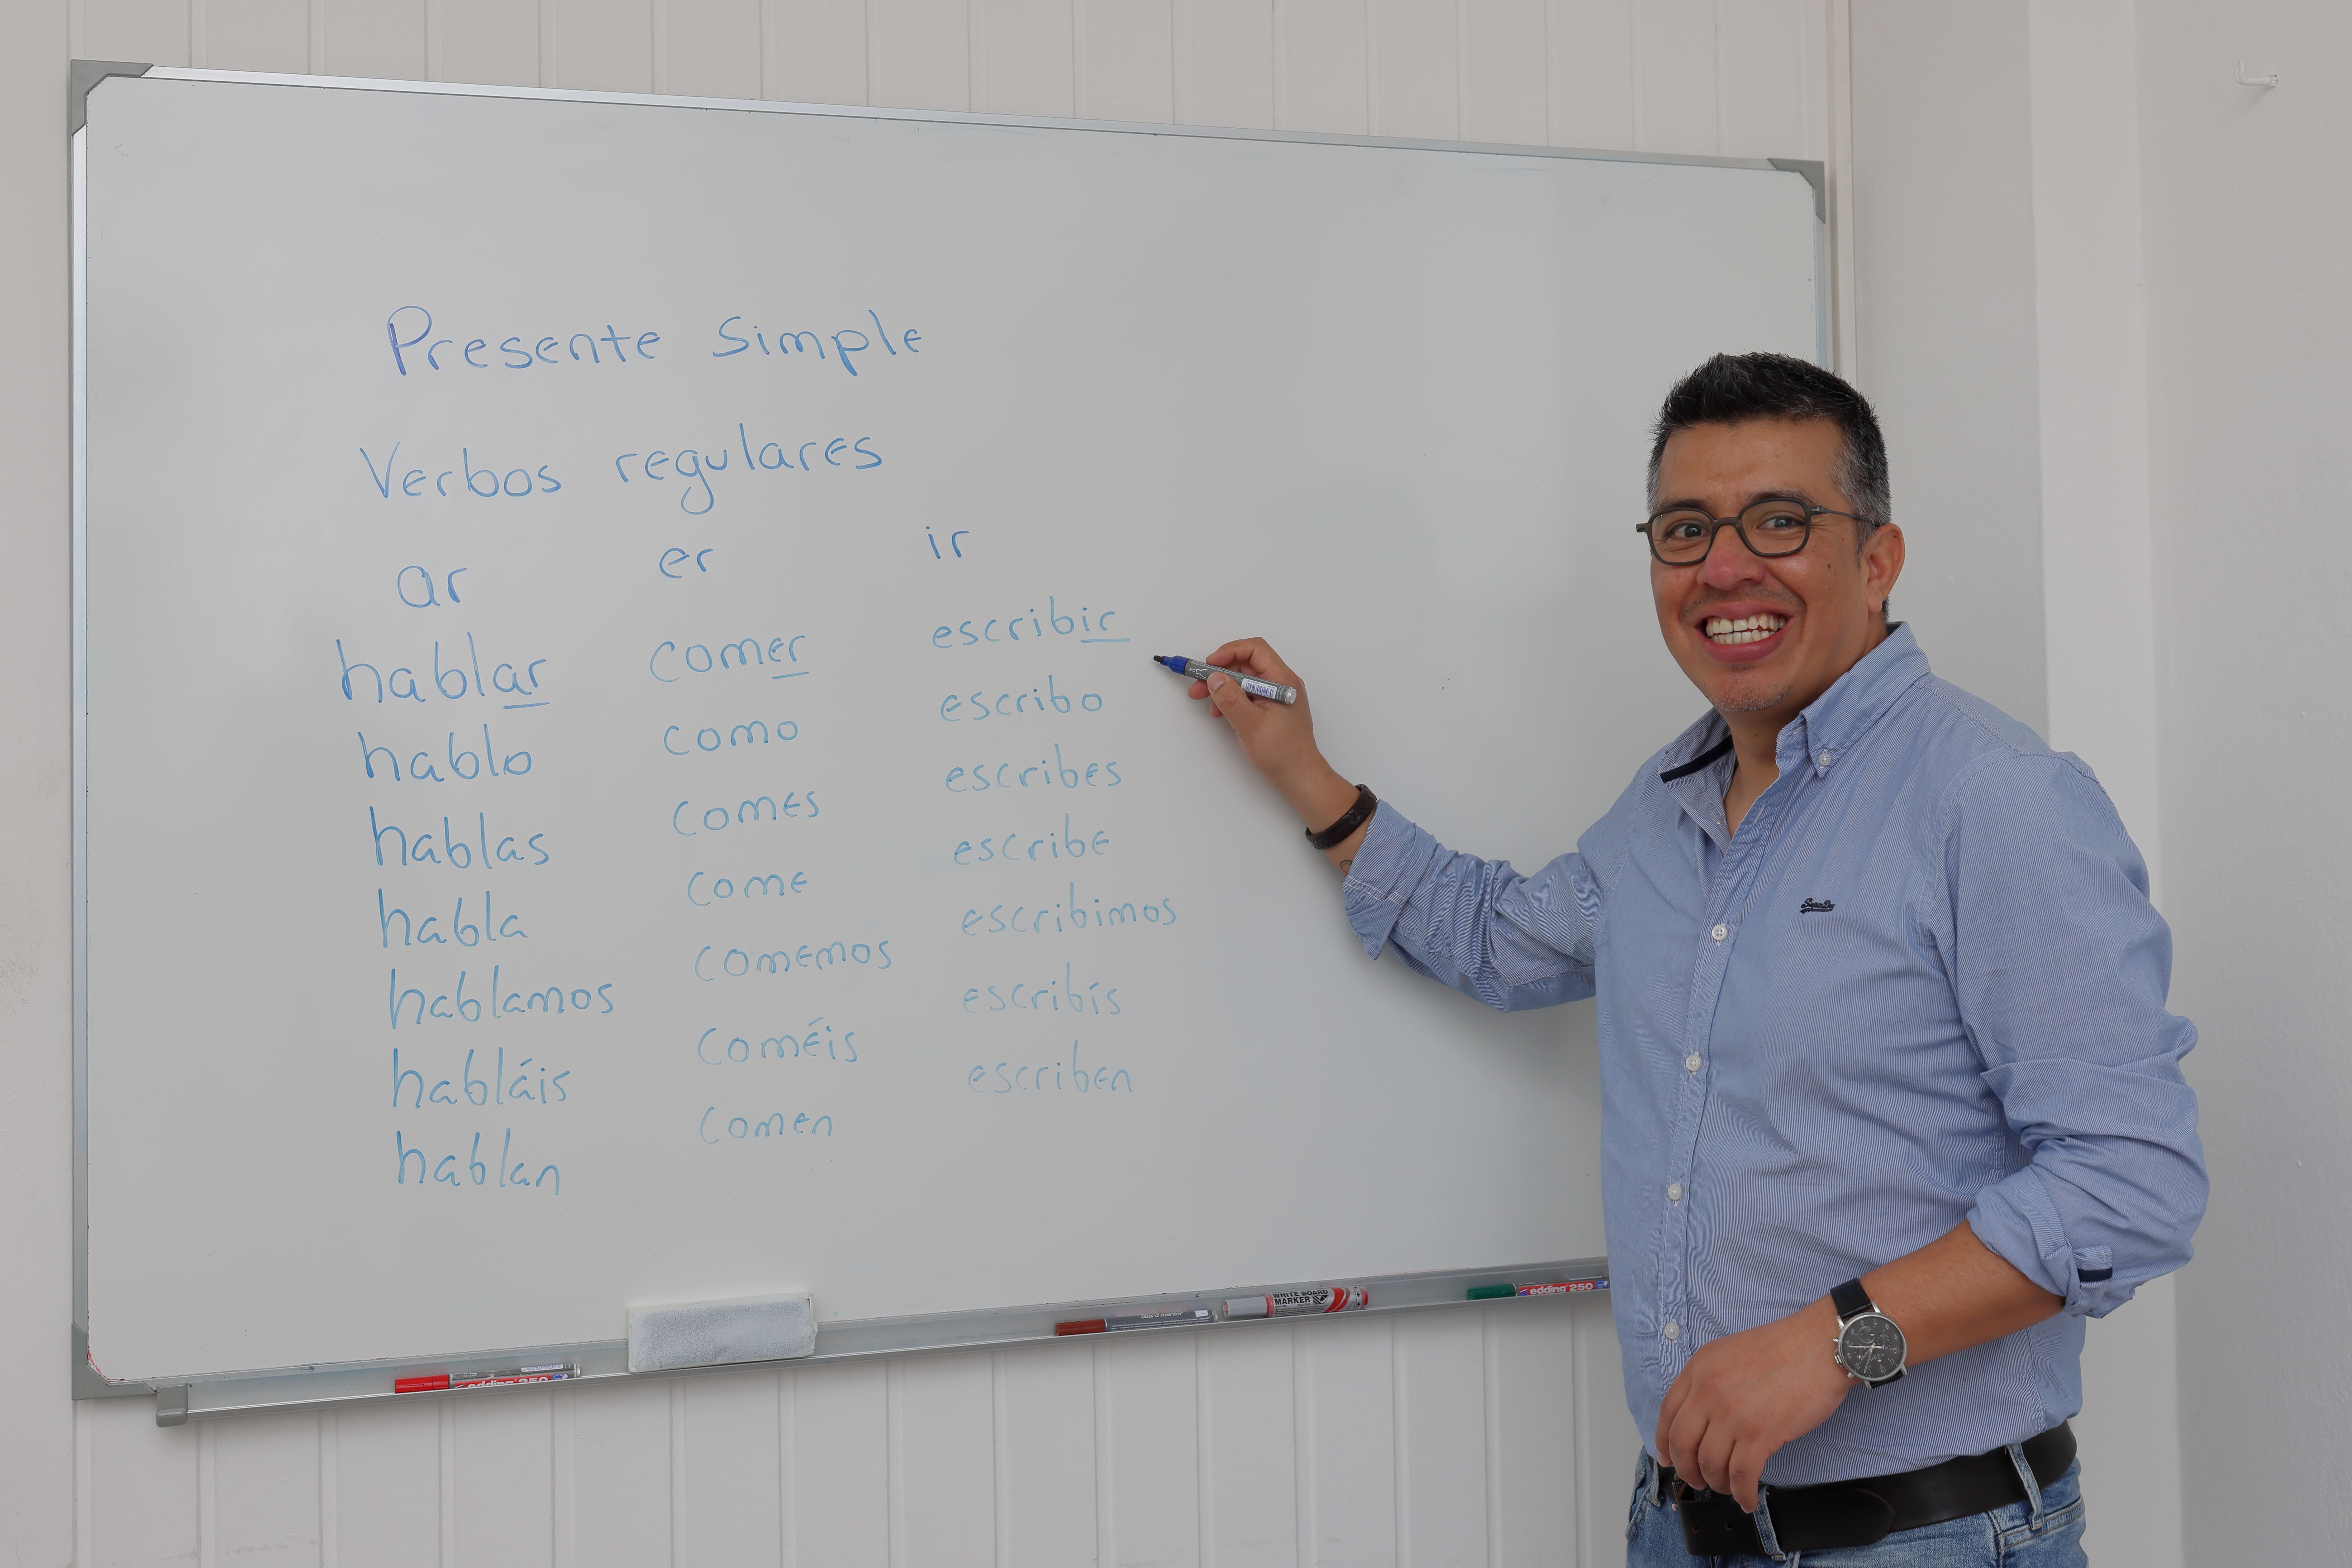 Presente Simple
Verbos regulares
ar er ir
hablar comer escribir
hablo como escribo
hablas comes escribes
habla come escribe
hablamos comemos escribimos
habláis coméis escribís
hablan comen escriben
SuperDry
WHITE BOARD
MARKER
edding 250
edding 250